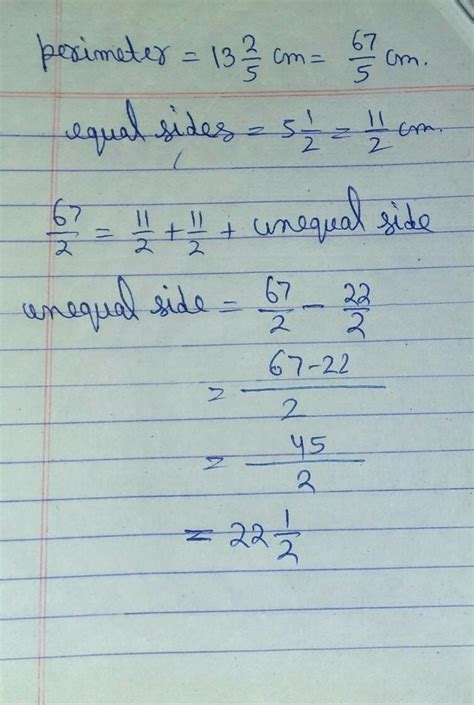 perimeter = 13 2/5 cm = 67/5 cm.
equal sides = 5 1/2 = 11/2 cm.
67/2 = 11/2 + 11/2 + unequal side
unequal side = 67/2 - 22/2
= 67-22/2
= 45/2
= 22 1/2